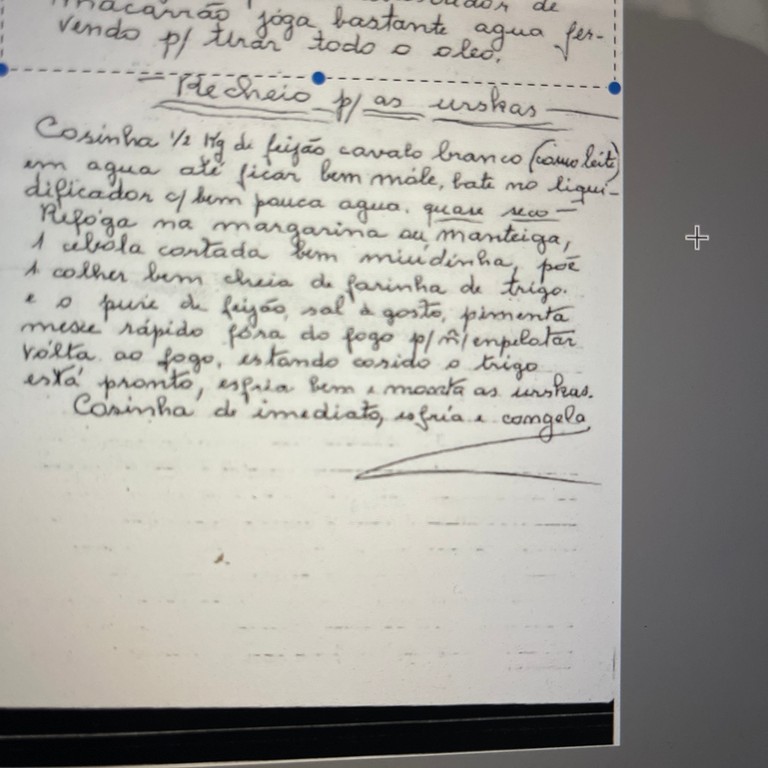 macarrão jóga bastante agua fer-
vendo p/ tirar todo o oleo.
- Recheio p/ as urskas -
Cosinha 1/2 Kg de feijão cavalo branco (como leite)
em agua até ficar bem móle, bate no liqui-
dificador c/ bem pouca agua. quase seco -
Refóga na margarina ou manteiga,
1 cebola cortada bem miúdinha, põe
1 colher bem cheia de farinha de trigo.
e o pure de feijão, sal à gosto, pimenta
mexe rápido fóra do fogo p/ ñ/ enpelotar
vólta ao fogo, estando cosido o trigo
está pronto, esfria bem e monta as urskas.
Cosinha de imediato, esfria e congela